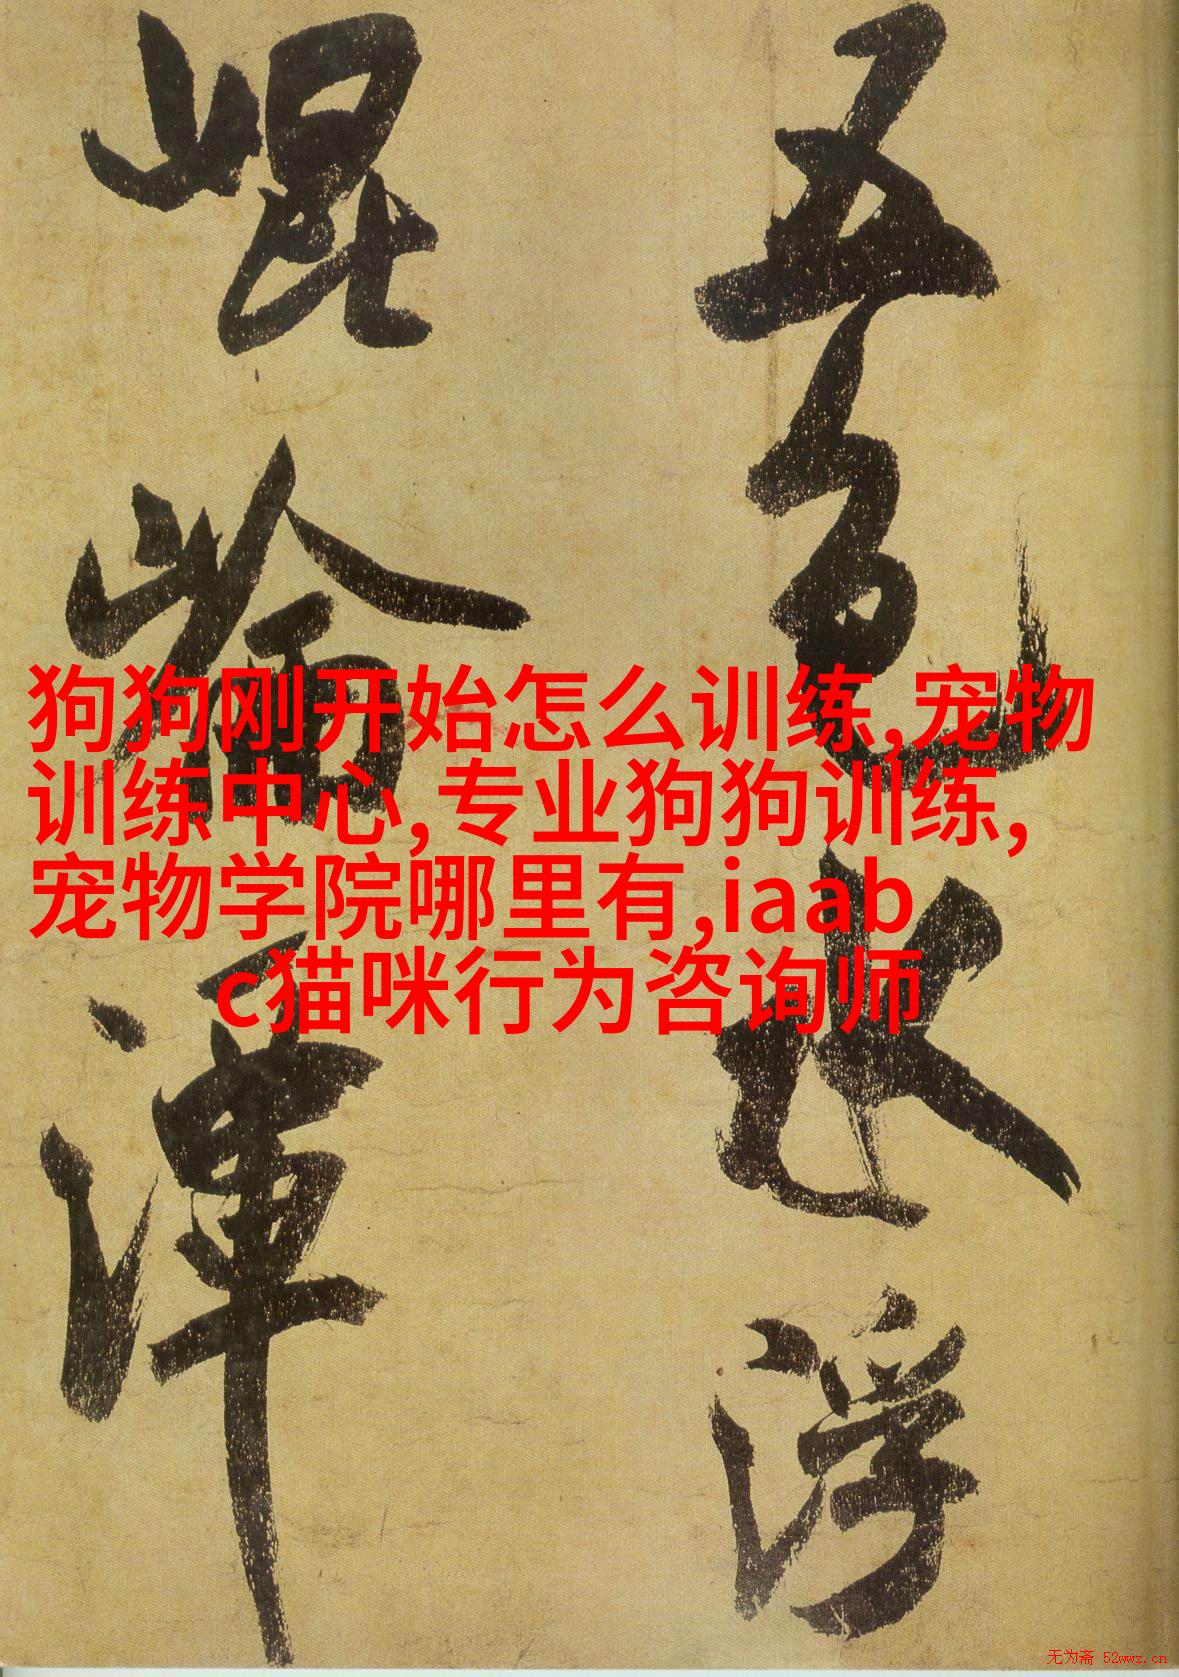 五色水浮
崐崘渾
狗狗刚开始怎么训练,宠物
训练中心,专业狗狗训练,
宠物学院哪里有,iaab
c猫咪行为咨询师
无为斋 52wwz.cn